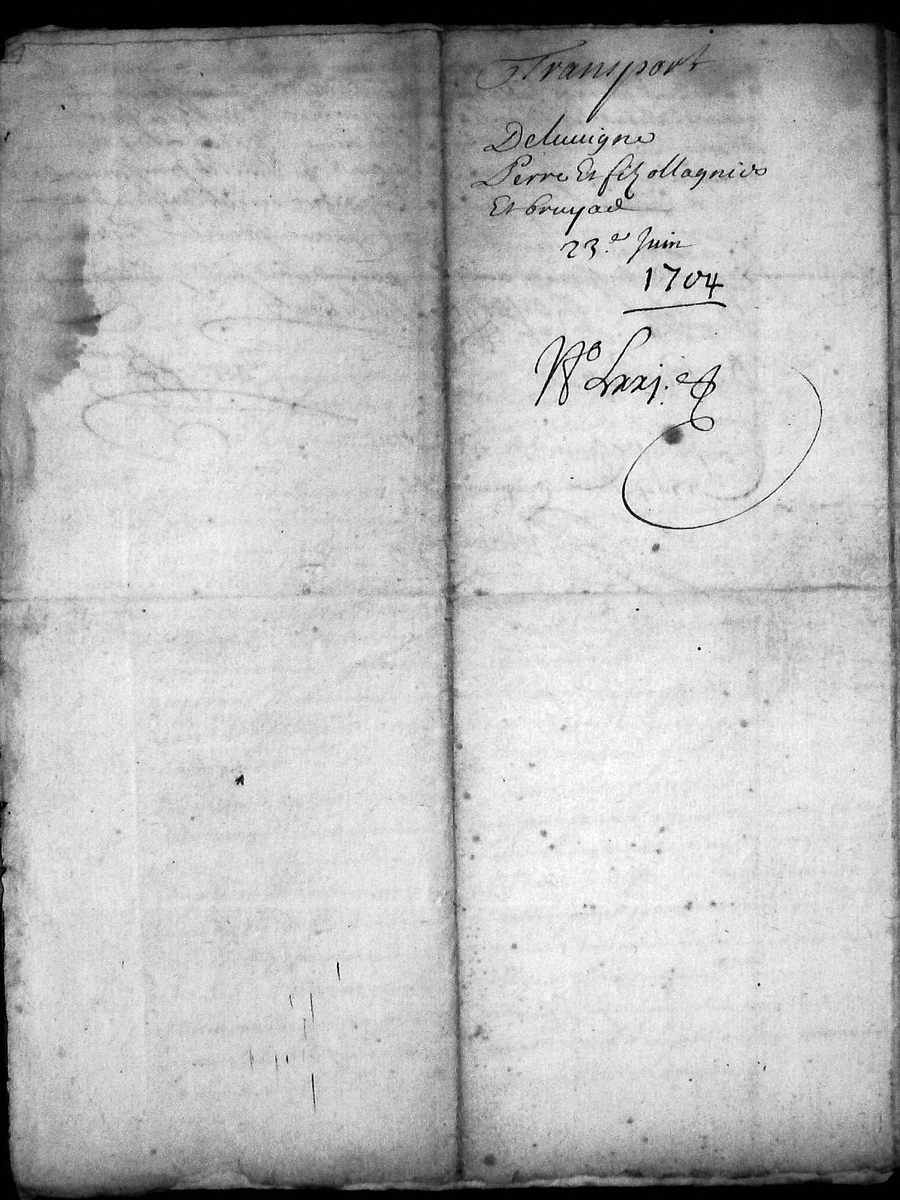 Transport
Delauigne
Perre Et filz Magnies
Et bruyad
23.e Juin
1704
No Lxxj.e